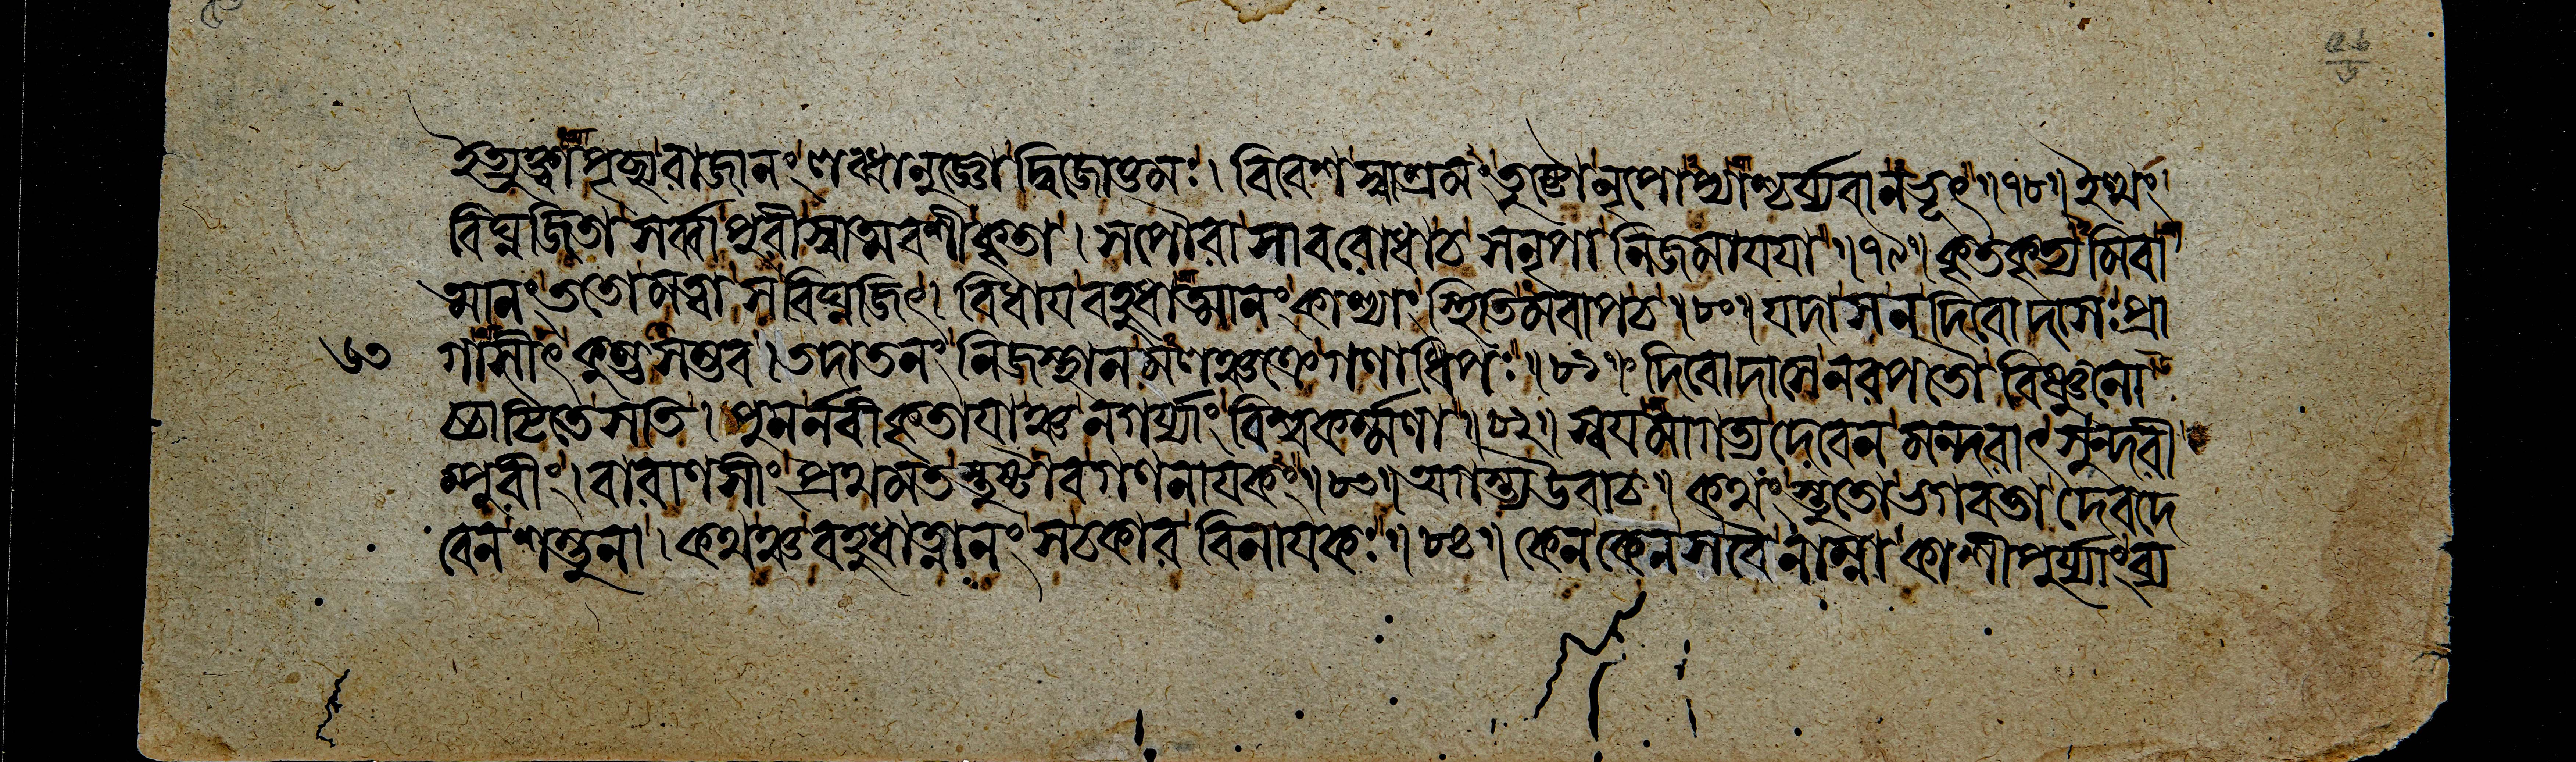 ইত্যুক্ত্বাপৃচ্ছ্য রাজানং লব্ধানুজ্ঞো দ্বিজোত্তমঃ। বিবেশ স্বাশ্রমং তুষ্টো নৃপোপ্যাশ্চর্য্যবানভূৎ॥৭৮॥ ইত্থং
বিঘ্নজিতা সর্ব্বা পুরী স্বাত্মবশীকৃতা। সপৌরা সাবরোধা চ সনৃপা নিজমায়যা॥৭৯॥ কৃতকৃত্যমিবা
ত্মানং ততো মত্বা স বিঘ্নজিৎ। বিধায বহুধাত্মানং কাশ্যাং স্থিতিমবাপ চ॥৮০॥ যদা স ন দিবোদাসঃ প্রা
৬৩ গাসীৎ কুম্ভসম্ভব। তদাতনং নিজস্থানমলঞ্চক্রে গণাধিপঃ॥৮১॥ দিবোদাসে নরপতৌ বিষ্ণুনো
চ্চাটিতে সতি। পুনর্নবীকৃতাযাঞ্চ নগর্য্যাং বিশ্বকর্ম্মণা॥৮২॥ স্বযমাগত্য দেবেন মন্দরাৎ সুন্দরী
ম্পুরীং। বারাণসীং প্রথমতস্তুষ্টাব গণনাযকং॥৮৩॥ অগস্ত্য উবাচ॥ কথং স্তুতো ভগবতা দেবদে
বেন শম্ভুনা। কথঞ্চ বহুধাত্মানং স চকার বিনাযকঃ॥৮৪॥ কেন কেন স বৈ নাম্না কাশীপুর্য্যাং ব্য